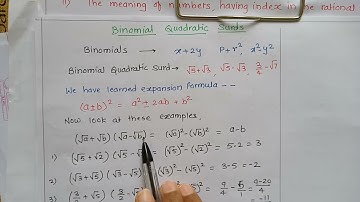 11) The meaning of numbers, having index in the rational
Binomial Quadratic Surds
Binomials → x+2y P+r², x²y²
Binomial Quadratic Surd→ √3+√3, √5-√3, 3/2-√7
We have learned expansion formula --
(a±b)² = a²±2ab+b²
Now look at these examples,
(√a+√b)(√a-√b) = (√a)²-(√b)² = a-b
1) (√5+√2)(√5- = (√5)²-(√2)² = 5-2 = 3
2) (√3+√5)(√3- (√3)²-(√5)² = 3-5 = -2
3) (3/2+√5)(3/2-√ -(√5)² = 9/4 - 5/1 = 9-20/4
= -11